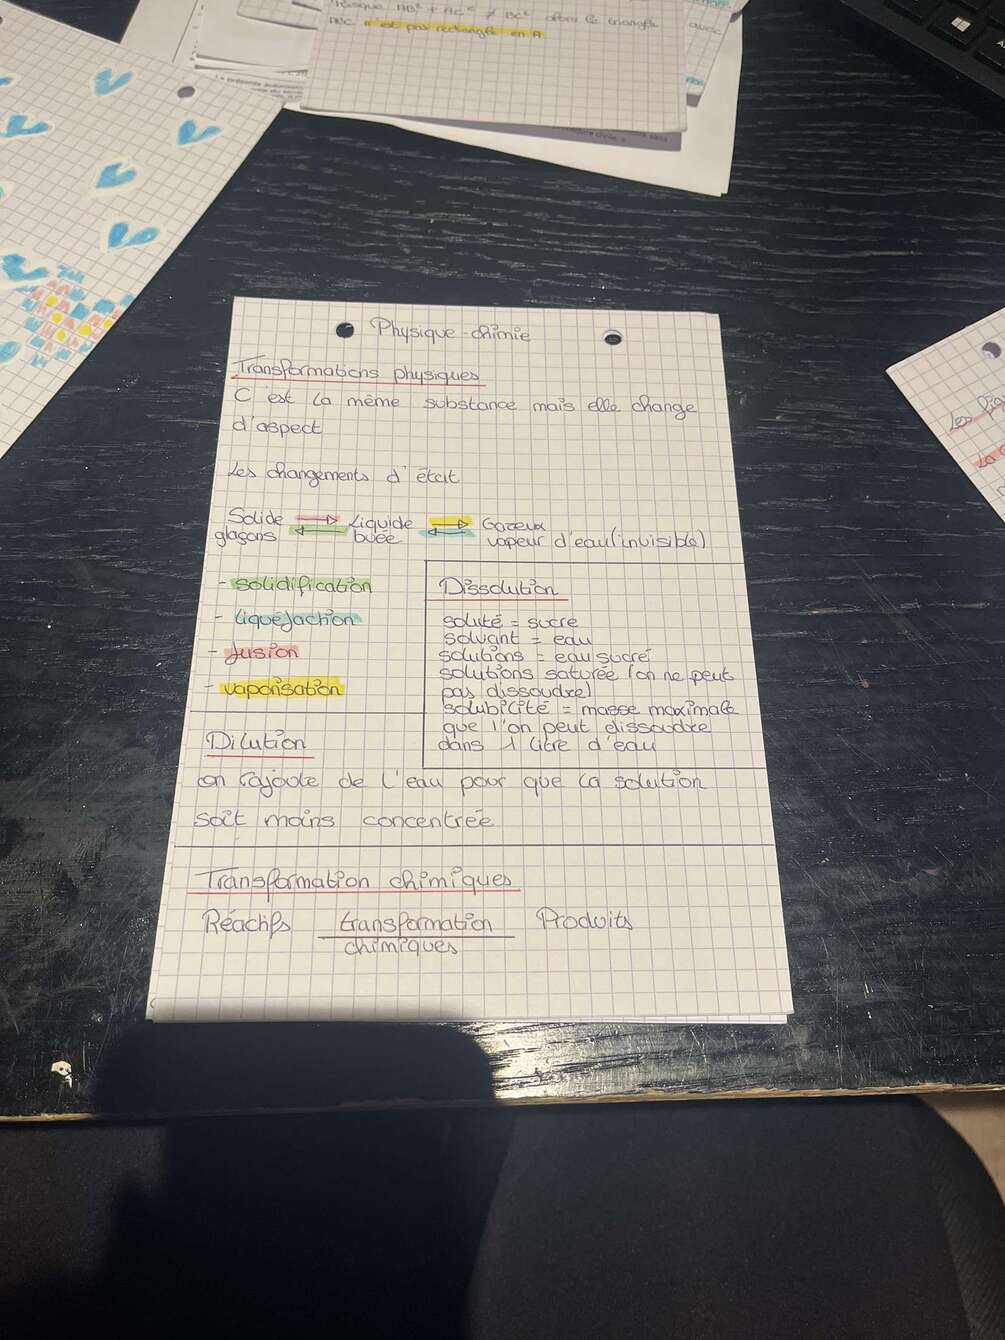 AB² + AC² ≠ BC² alors le triangle
ABC n'est pas rectangle en A
avec
Physique-chimie
Transformations physiques
C'est la même substance mais elle change
d'aspect
Les changements d'état
Solide Liquide Gazeux
glaçons buée vapeur d'eau (invisible)
- solidification
- liquéfaction
- fusion
- vaporisation
Dissolution
soluté = sucre
solvant = eau
solutions = eau sucré
solutions saturée (on ne peut
pas dissoudre)
solubilité = masse maximale
que l'on peut dissoudre
dans 1 litre d'eau
Dilution
on rajoute de l'eau pour que la solution
soit moins concentrée
Transformation chimiques
Réactifs transformation Produits
chimiques